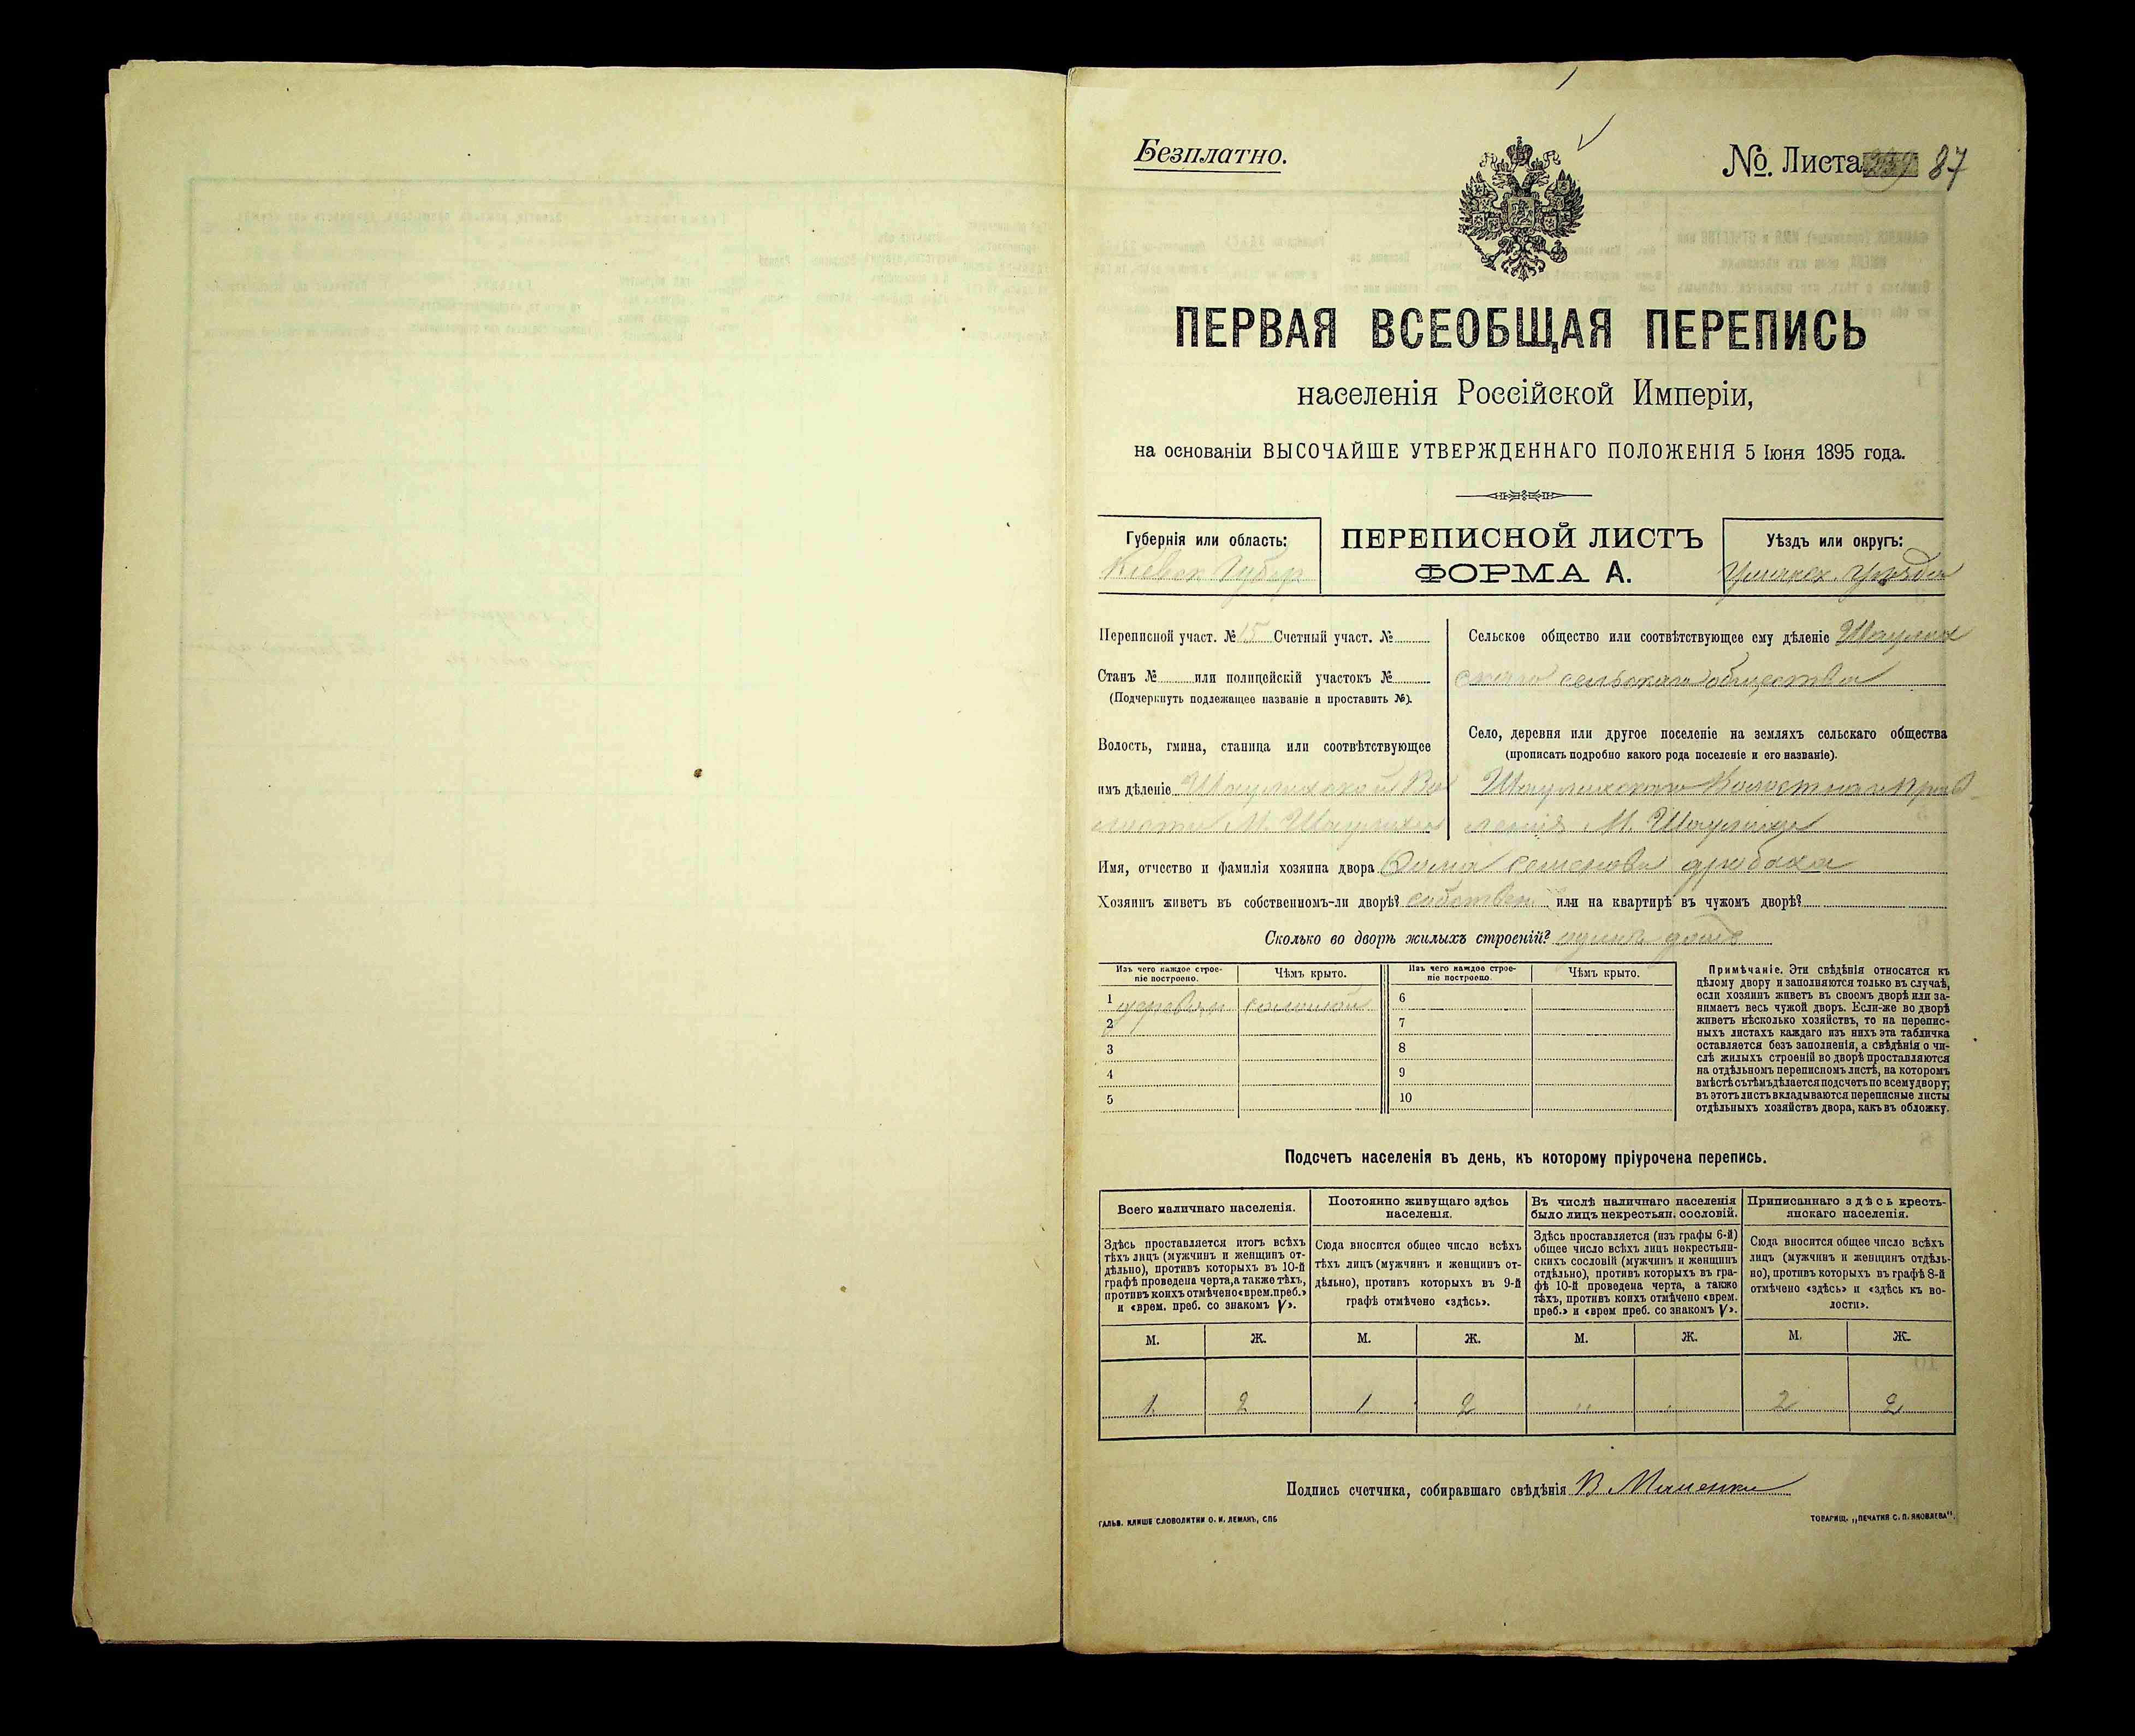 Безплатно.
№. Листа 87
ПЕРВАЯ ВСЕОБЩАЯ ПЕРЕПИСЬ
населенія Россійской Имперіи,
на основаніи ВЫСОЧАЙШЕ УТВЕРЖДЕННАГО ПОЛОЖЕНІЯ 5 Іюня 1895 года.
Губернія или область:
Кіевск Губер
ПЕРЕПИСНОЙ ЛИСТЪ
ФОРМА А.
Уѣздъ или округъ:
Уманск. Уѣзда
Переписной участ. № 15 Счетный участ. №
Станъ № или полицейскій участокъ №
(Подчеркнуть подлежащее названіе и проставить №).
Волость, гмина, станица или соотвѣтствующее
имъ дѣленіе
Сельское общество или соотвѣтствующее ему дѣленіе
скаго сельскаго общества
Село, деревня или другое поселеніе на земляхъ сельскаго общества
(прописать подробно какого рода поселеніе и его названіе).
Имя, отчество и фамилія хозяина двора
Хозяинъ живетъ въ собственномъ-ли дворѣ? собствен или на квартирѣ въ чужомъ дворѣ?
Сколько во дворѣ жилыхъ строеній? одинъ домъ
Изъ чего каждое строе-
ніе построено.
Чѣмъ крыто.
Изъ чего каждое строе-
ніе построено.
Чѣмъ крыто.
1 деревян соломой
2
3
4
5
6
7
8
9
10
Примѣчаніе. Эти свѣдѣнія относятся къ
цѣлому двору и заполняются только въ случаѣ,
если хозяинъ живетъ въ своемъ дворѣ или за-
нимаетъ весь чужой дворъ. Если-же во дворѣ
живетъ нѣсколько хозяйствъ, то на перепис-
ныхъ листахъ каждаго изъ нихъ эта табличка
оставляется безъ заполненія, а свѣдѣнія о чи-
слѣ жилыхъ строеній во дворѣ проставляются
на отдѣльномъ переписномъ листѣ, на которомъ
вмѣстѣ съ тѣмъ дѣлается подсчетъ по всему двору;
въ этотъ листъ вкладываются переписные листы
отдѣльныхъ хозяйствъ двора, какъ въ обложку.
Подсчетъ населенія въ день, къ которому пріурочена перепись.
Всего наличнаго населенія.
Здѣсь проставляется итогъ всѣхъ
тѣхъ лицъ (мужчинъ и женщинъ от-
дѣльно), противъ которыхъ въ 10-й
графѣ проведена черта, а также тѣхъ,
противъ коихъ отмѣчено «врем. преб.»
и «врем. преб. со знакомъ V».
Постоянно живущаго здѣсь
населенія.
Сюда вносится общее число всѣхъ
тѣхъ лицъ (мужчинъ и женщинъ от-
дѣльно), противъ которыхъ въ 9-й
графѣ отмѣчено «здѣсь».
Въ числѣ наличнаго населенія
было лицъ некрестьян. сословій.
Здѣсь проставляется (изъ графы 6-й)
общее число всѣхъ лицъ некрестьян-
скихъ сословій (мужчинъ и женщинъ
отдѣльно), противъ которыхъ въ гра-
фѣ 10-й проведена черта, а также
тѣхъ, противъ коихъ отмѣчено «врем.
преб.» и «врем преб. со знакомъ V».
Приписаннаго здѣсь кресть-
янскаго населенія.
Сюда вносится общее число всѣхъ
лицъ (мужчинъ и женщинъ отдѣль-
но), противъ которыхъ въ графѣ 8-й
отмѣчено «здѣсь» и «здѣсь къ во-
лости».
М. Ж. М. Ж. М. Ж. М. Ж.
1 2 1 2 " " 2 2
Подпись счетчика, собиравшаго свѣдѣнія
ГАЛЬВ. КЛИШЕ СЛОВОЛИТНИ О. И. ЛЕМАНЪ, СПБ
ТОВАРИЩ. „ПЕЧАТНЯ С. П. ЯКОВЛЕВА".